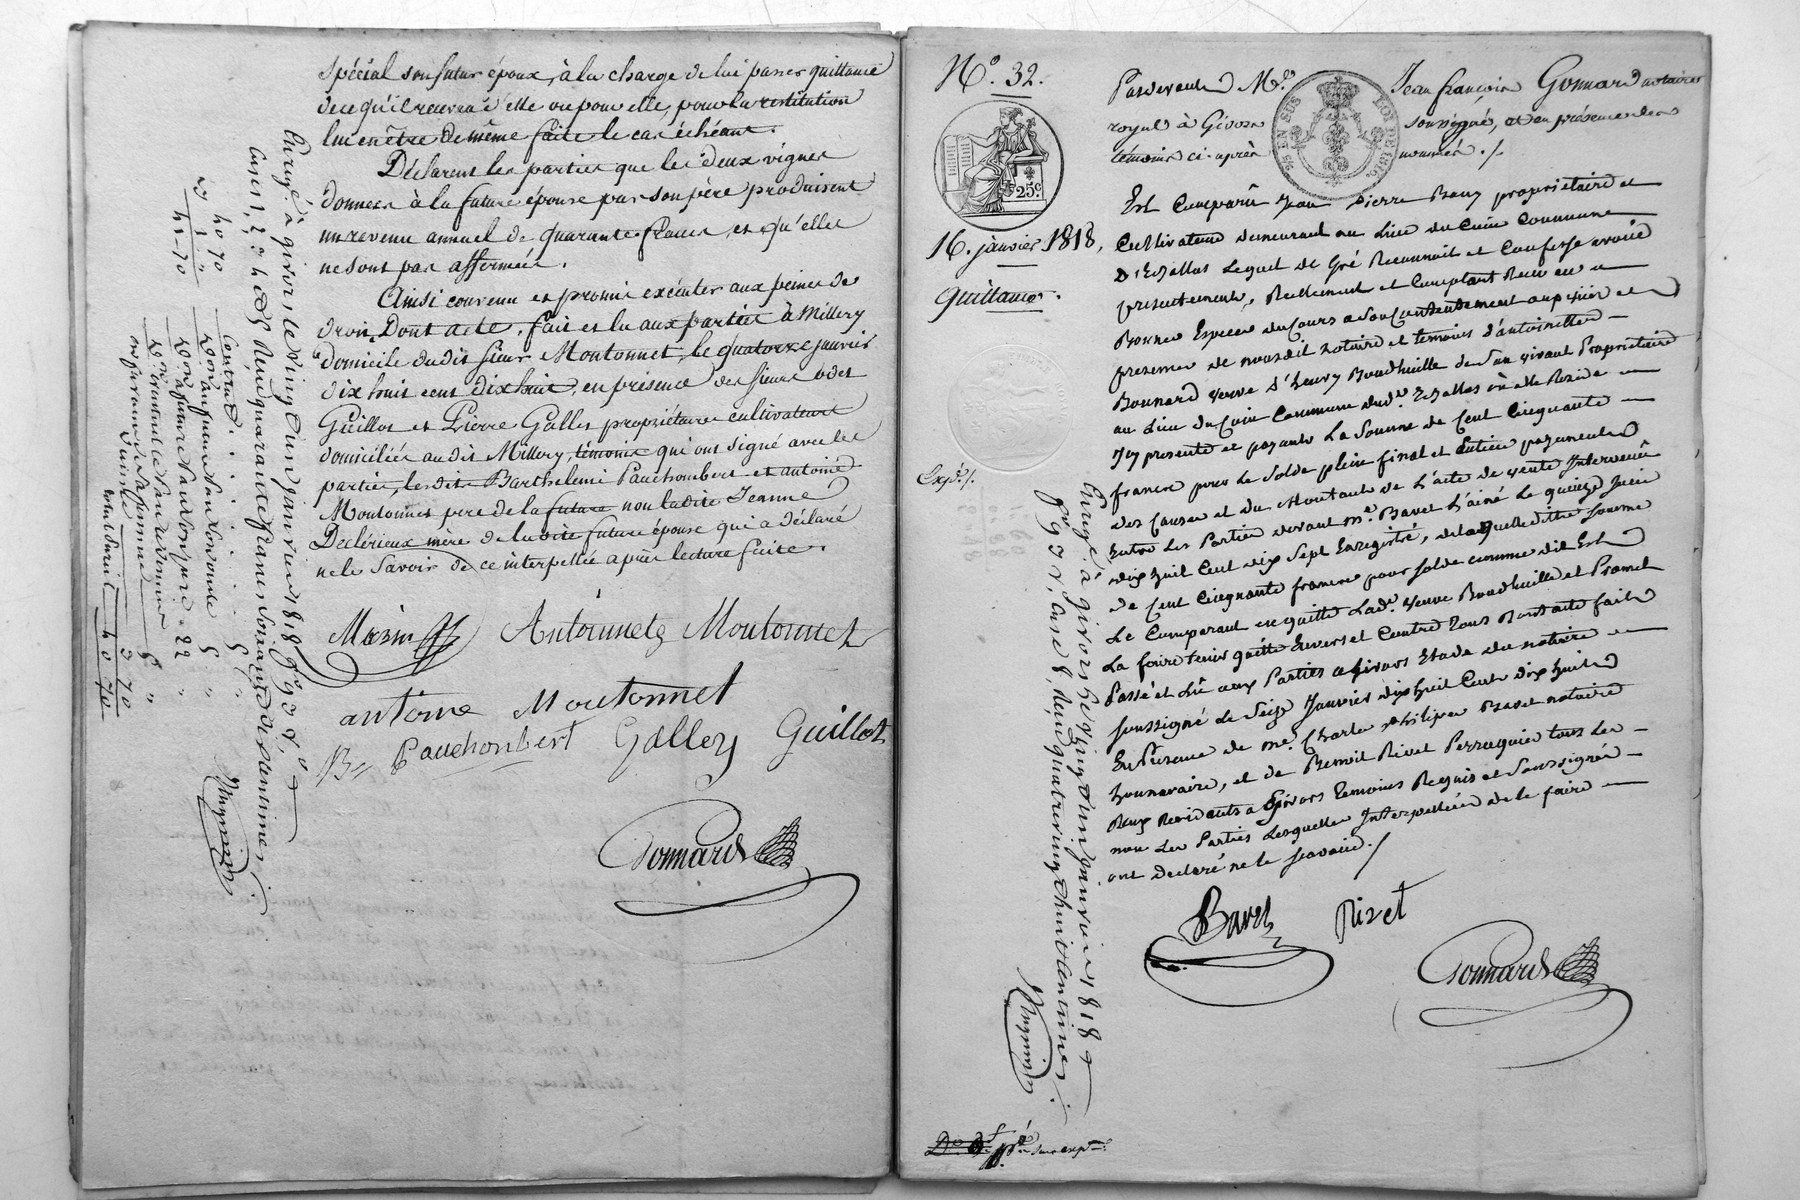 spécial son futur époux, à la charge de lui passer quittance
de ce qu'il recevra d'elle ou pour elle, pour la restitution
lui en être de même faite le cas échéant.
Déclarent les parties que les deux vignes
données à la future épouse par son père produisent
un revenu annuel de quarante francs, et qu'elles
ne sont pas affermées.
Ainsi convenu et promis exécuter aux peines de
droit, Dont acte, fait et lu aux parties à Millery
domicile du dit sieur Moutonnet, le quatorze janvier
dix huit cent dix huit, en présence des sieurs
Guillot et Pierre Galley propriétaires cultivateurs
domiciliés au dit Millery, témoins qui ont signé avec les
parties, lesdits Barthelemi Pauchombert et antoine
Moutonnet pere de la future non ladite Jeanne
Declérieux mère de la dite future épouse qui a déclaré
ne le savoir de ce interpellée après lecture faite.
Antoinnete Moutonnet
antoine Moutonnet
B. Pauchombert Galley Guillot
Gonnard
Enregé à givors le vingt un janvier 1818 fo 93 Vo
Reçu quarante francs soixante dix centimes
40 70
Contrat
N° 32.
25 c
16. janvier 1818,
Quittance.
Expé /.
Pardevant Me Jean françois Gonnard notaire
royal à Givors soussigné, et en présence des
témoins ci-après nommés ./.
25 EN SUS
LOI DE 1816.
Est Comparû Jean Pierre Bony propriétaire et
Cultivateur demeurant au Lieu du Coin Commune
d'Echallas Lequel de Gré Reconnoit et Confesse avoir
presentement, Réellement et Comptant Reçu en
Bonnes Espèces du Cours a son Contentement aux yeux et
presence de nous dit notaire et temoins d'antoinette
Bonnard Veuve d'henry Boudhuille de son vivant Propriétaire
au Lieu du Coin Commune dud. Echallas où elle Reside
Icy presente et payante La Somme de Cent Cinquante
francs pour Le Solde plein final et Entier payement
des Causes et du Montant de L'acte de vente Intervenû
Entre Les Parties devant me Bavet L'ainé Le quinze Juin
dix huit Cent dix Sept Enregistré, de laquelle ditte Somme
de Cent Cinquante francs pour solde comme dit Est
Le Comparant en quitte Lade Veuve Boudhuille et Promet
La faire tenir quitte Envers et Contre Tous Dont acte fait
Passé et Lû aux Parties a Givors Etude du notaire
soussigné Le Seize Janvier dix huit Cent dix huit
En Présence de me Charle philipe Bavet notaire
honnoraire, et de Benoit Rivet Perruquier tous Les
deux Residents a Givors temoins Requis et Soussignés
non Les Parties Lesquelles Interpellées de le faire
ont Declaré ne le scavoir. /
Bavet Rivet
Gonnard
Enregé à givors le vingt un janvier 1818
fo 93 Vo, case 8, Reçu quatre vingt huit centimes